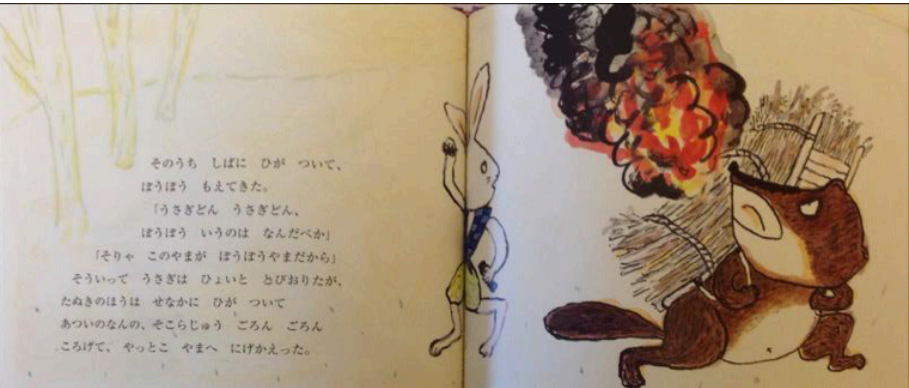 そのうち　しばに　ひが　ついて、
ぼうぼう　もえてきた。
「うさぎどん　うさぎどん、
ぼうぼう　いうのは　なんだべか」
「そりゃ　このやまが　ぼうぼうやまだから」
そういって　うさぎは　ひょいと　とびおりたが、
たぬきのほうは　せなかに　ひが　ついて
あついのなんの、そこらじゅう　ごろん　ごろん
ころげて、やっとこ　やまへ　にげかえった。